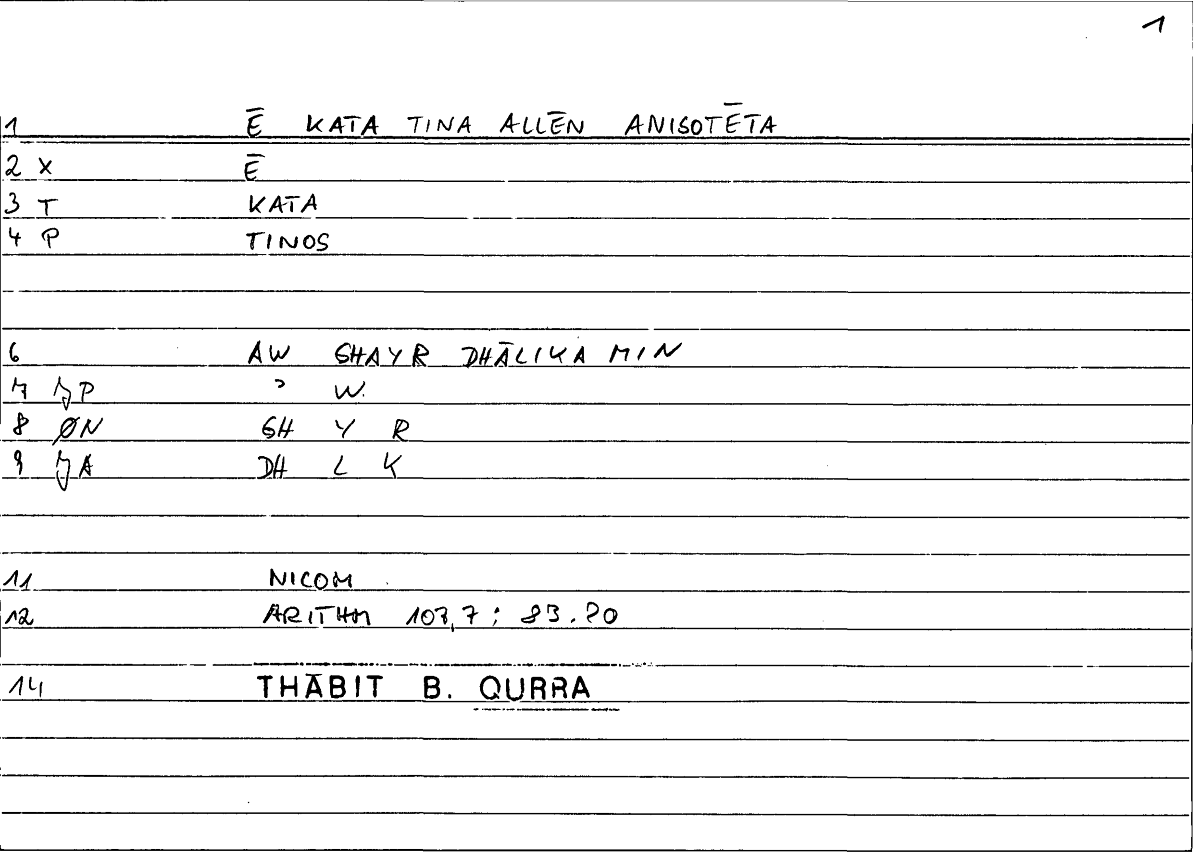 1
1 Ē KATA TINA ALLĒN ANISOTĒTA
2 X Ē
3 T KATA
4 P TINOS
6 AW GHAYR DHĀLIKA MIN
7 P ʾ W
8 ØN GH Y R
9 A DH L K
11 NICOM
12 ARITHM 107,7; 83.20
14 THĀBIT B. QURRA